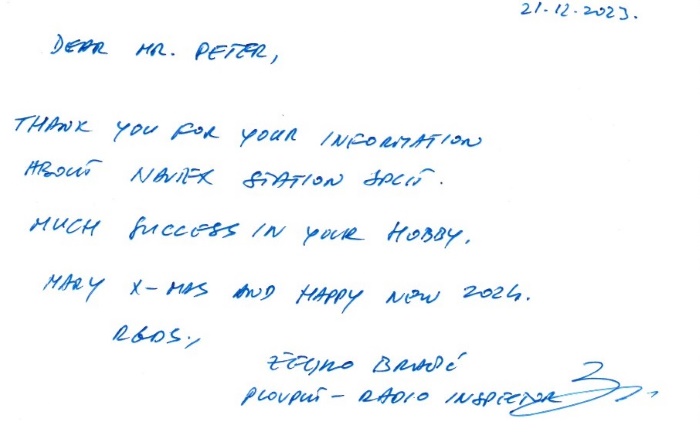 21.12.2023.
DEAR MR. PETER,
THANK YOU FOR YOUR INFORMATION
ABOUT NAVTEX STATION SPLIT.
MUCH SUCCESS IN YOUR HOBBY.
MARY X-MAS AND HAPPY NEW 2024.
RGDS.,
ŽELJKO
PLOVPUT - RADIO INSPECTOR